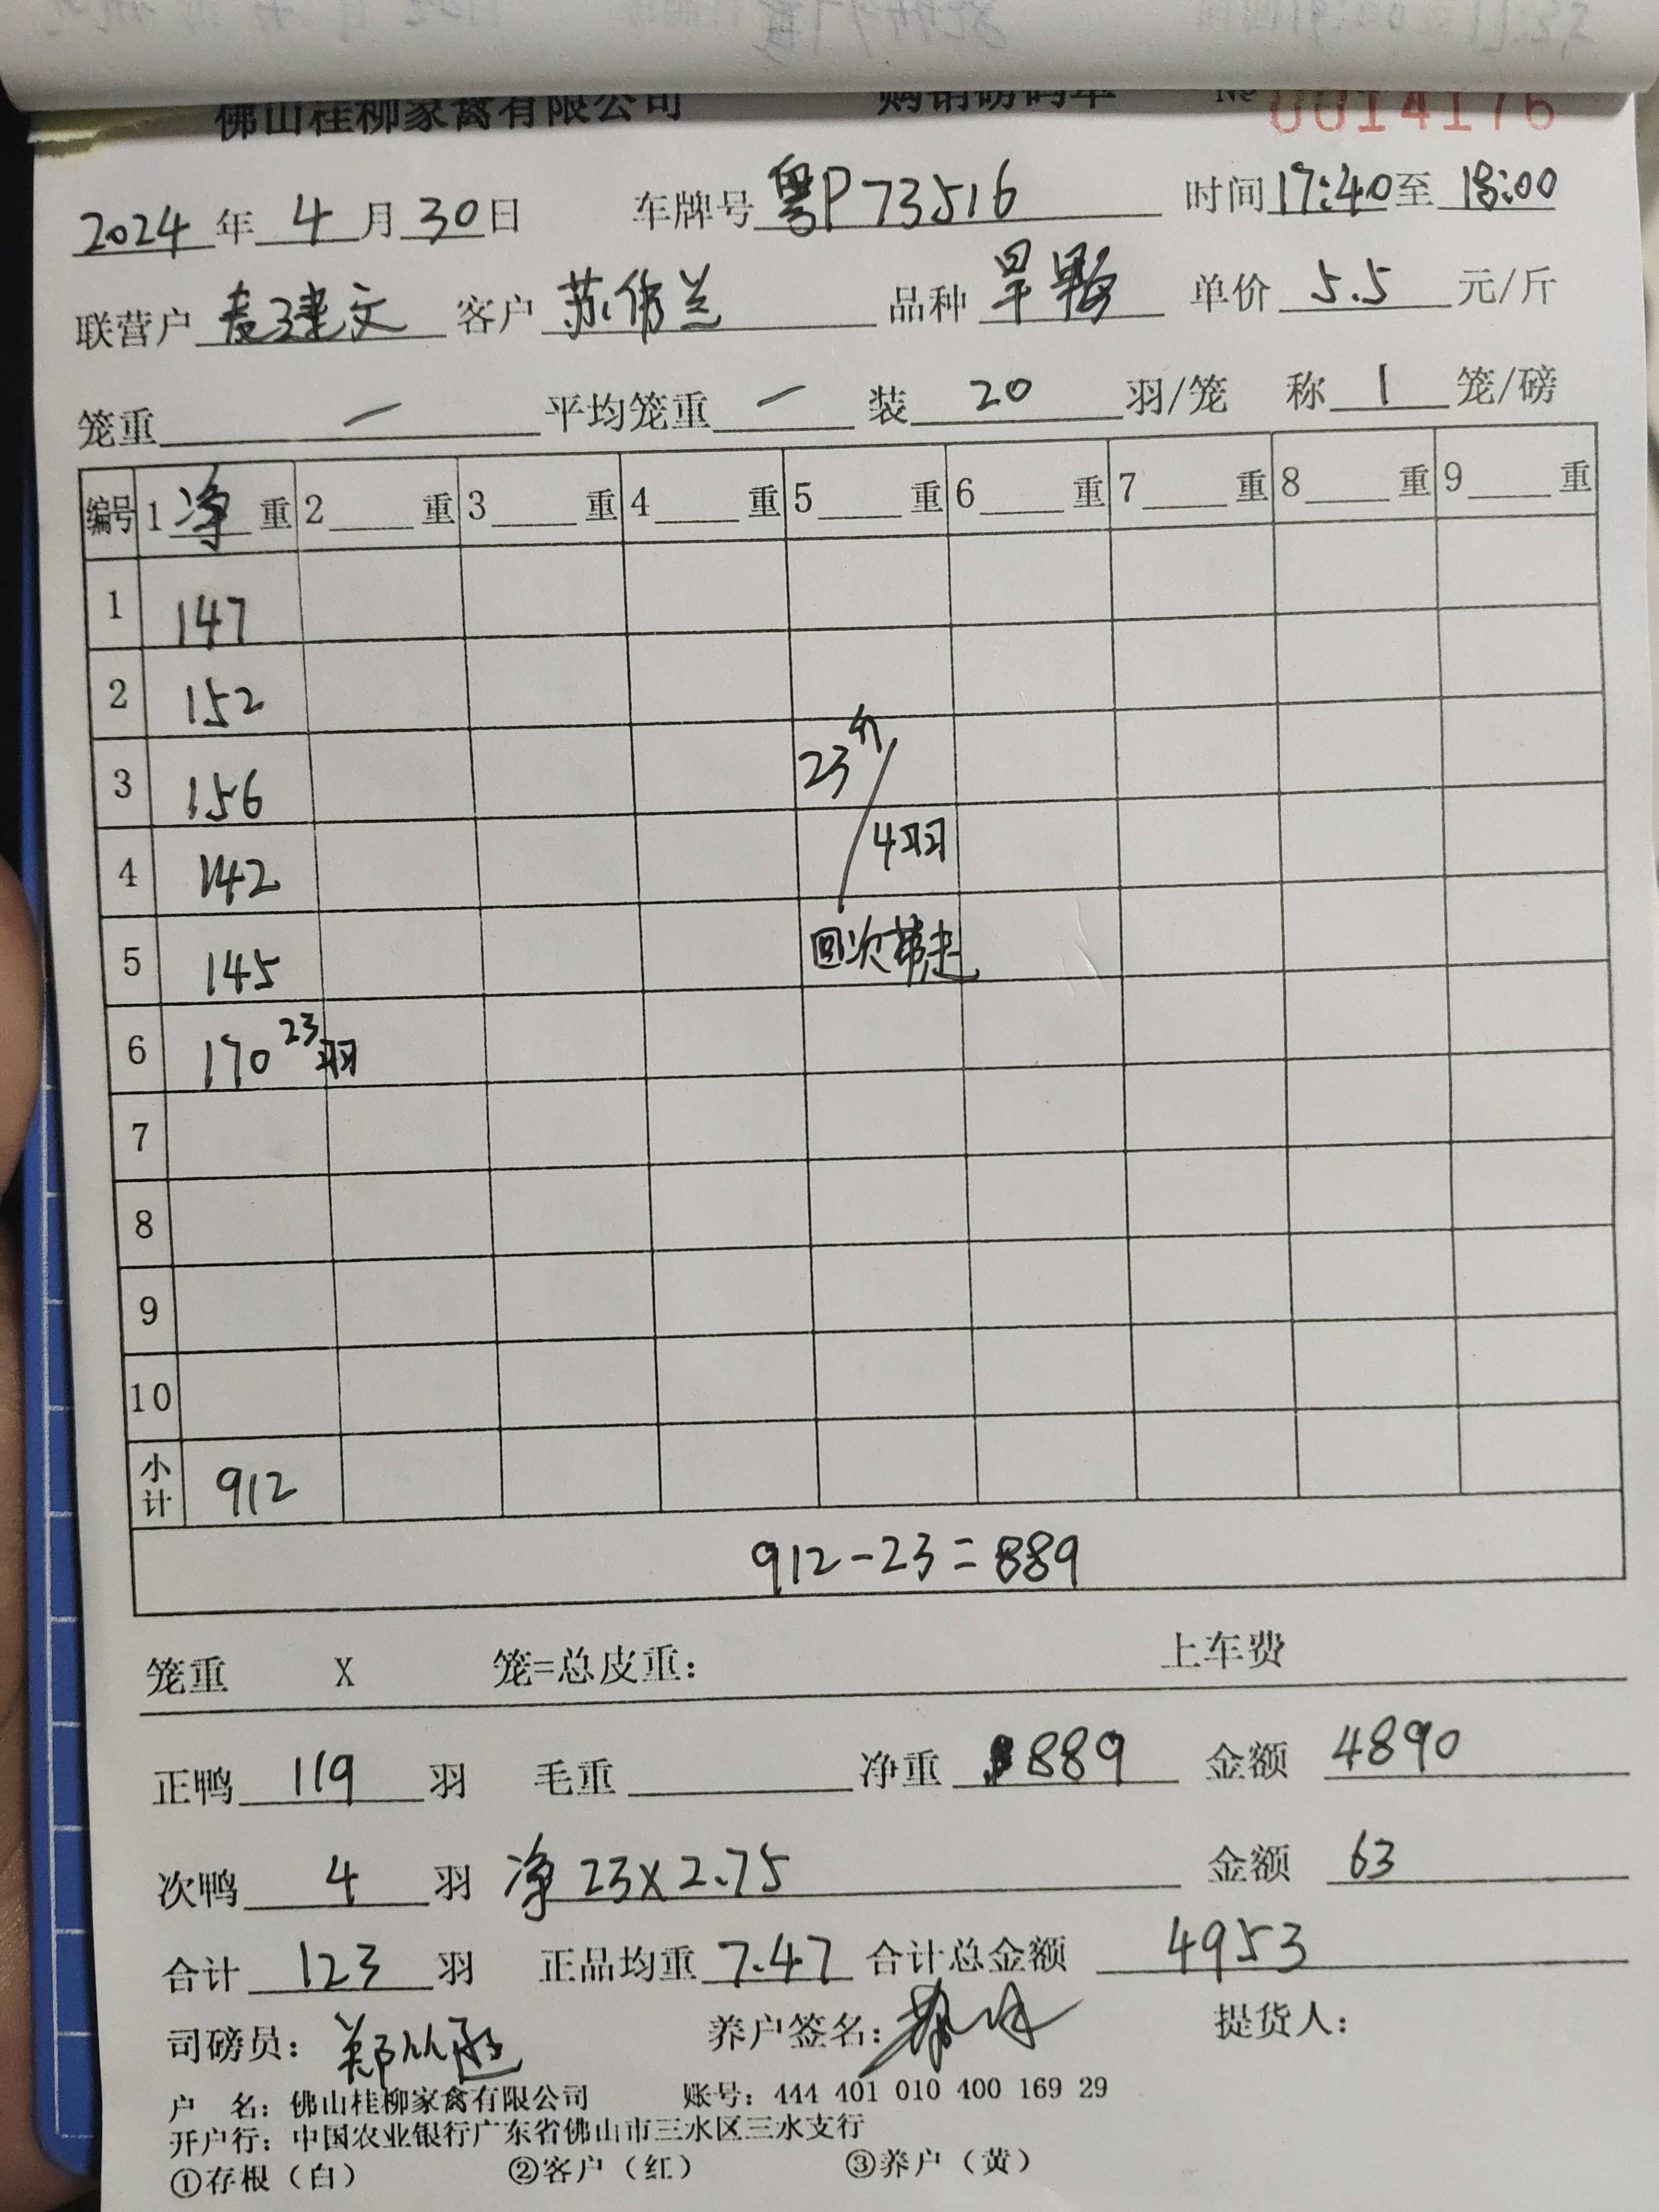 佛山桂柳家禽有限公司 购销磅码单 № 0014176
2024年4月30日 车牌号 粤P73516 时间17:40至18:00
联营户 麦建文 客户 苏伟兰 品种 旱鸭 单价 5.5 元/斤
笼重 一 平均笼重 一 装 20 羽/笼 称 1 笼/磅
编号 1 净 重 2 重 3 重 4 重 5 重 6 重 7 重 8 重 9 重
1 147
2 152
3 156 23斤/
4 142 4羽
5 145 回次带走
6 170 23羽
7
8
9
10
小计 912
912-23=889
笼重 X 笼=总皮重: 上车费
正鸭 119 羽 毛重 净重 889 金额 4890
次鸭 4 羽 净 23x2.75 金额 63
合计 123 羽 正品均重 7.47 合计总金额 4953
司磅员: 养户签名: 提货人:
户 名: 佛山桂柳家禽有限公司 账号: 444 401 010 400 169 29
开户行: 中国农业银行广东省佛山市三水区三水支行
①存根（白） ②客户（红） ③养户（黄）